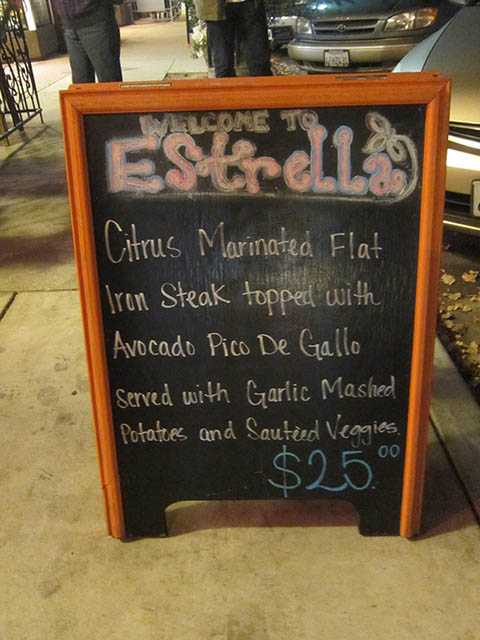 WELCOME TO
EStrella
Citrus Marinated Flat
Iron Steak topped with
Avocado Pico De Gallo
served with Garlic Mashed
Potatoes and Sautéed Veggies.
$25.00